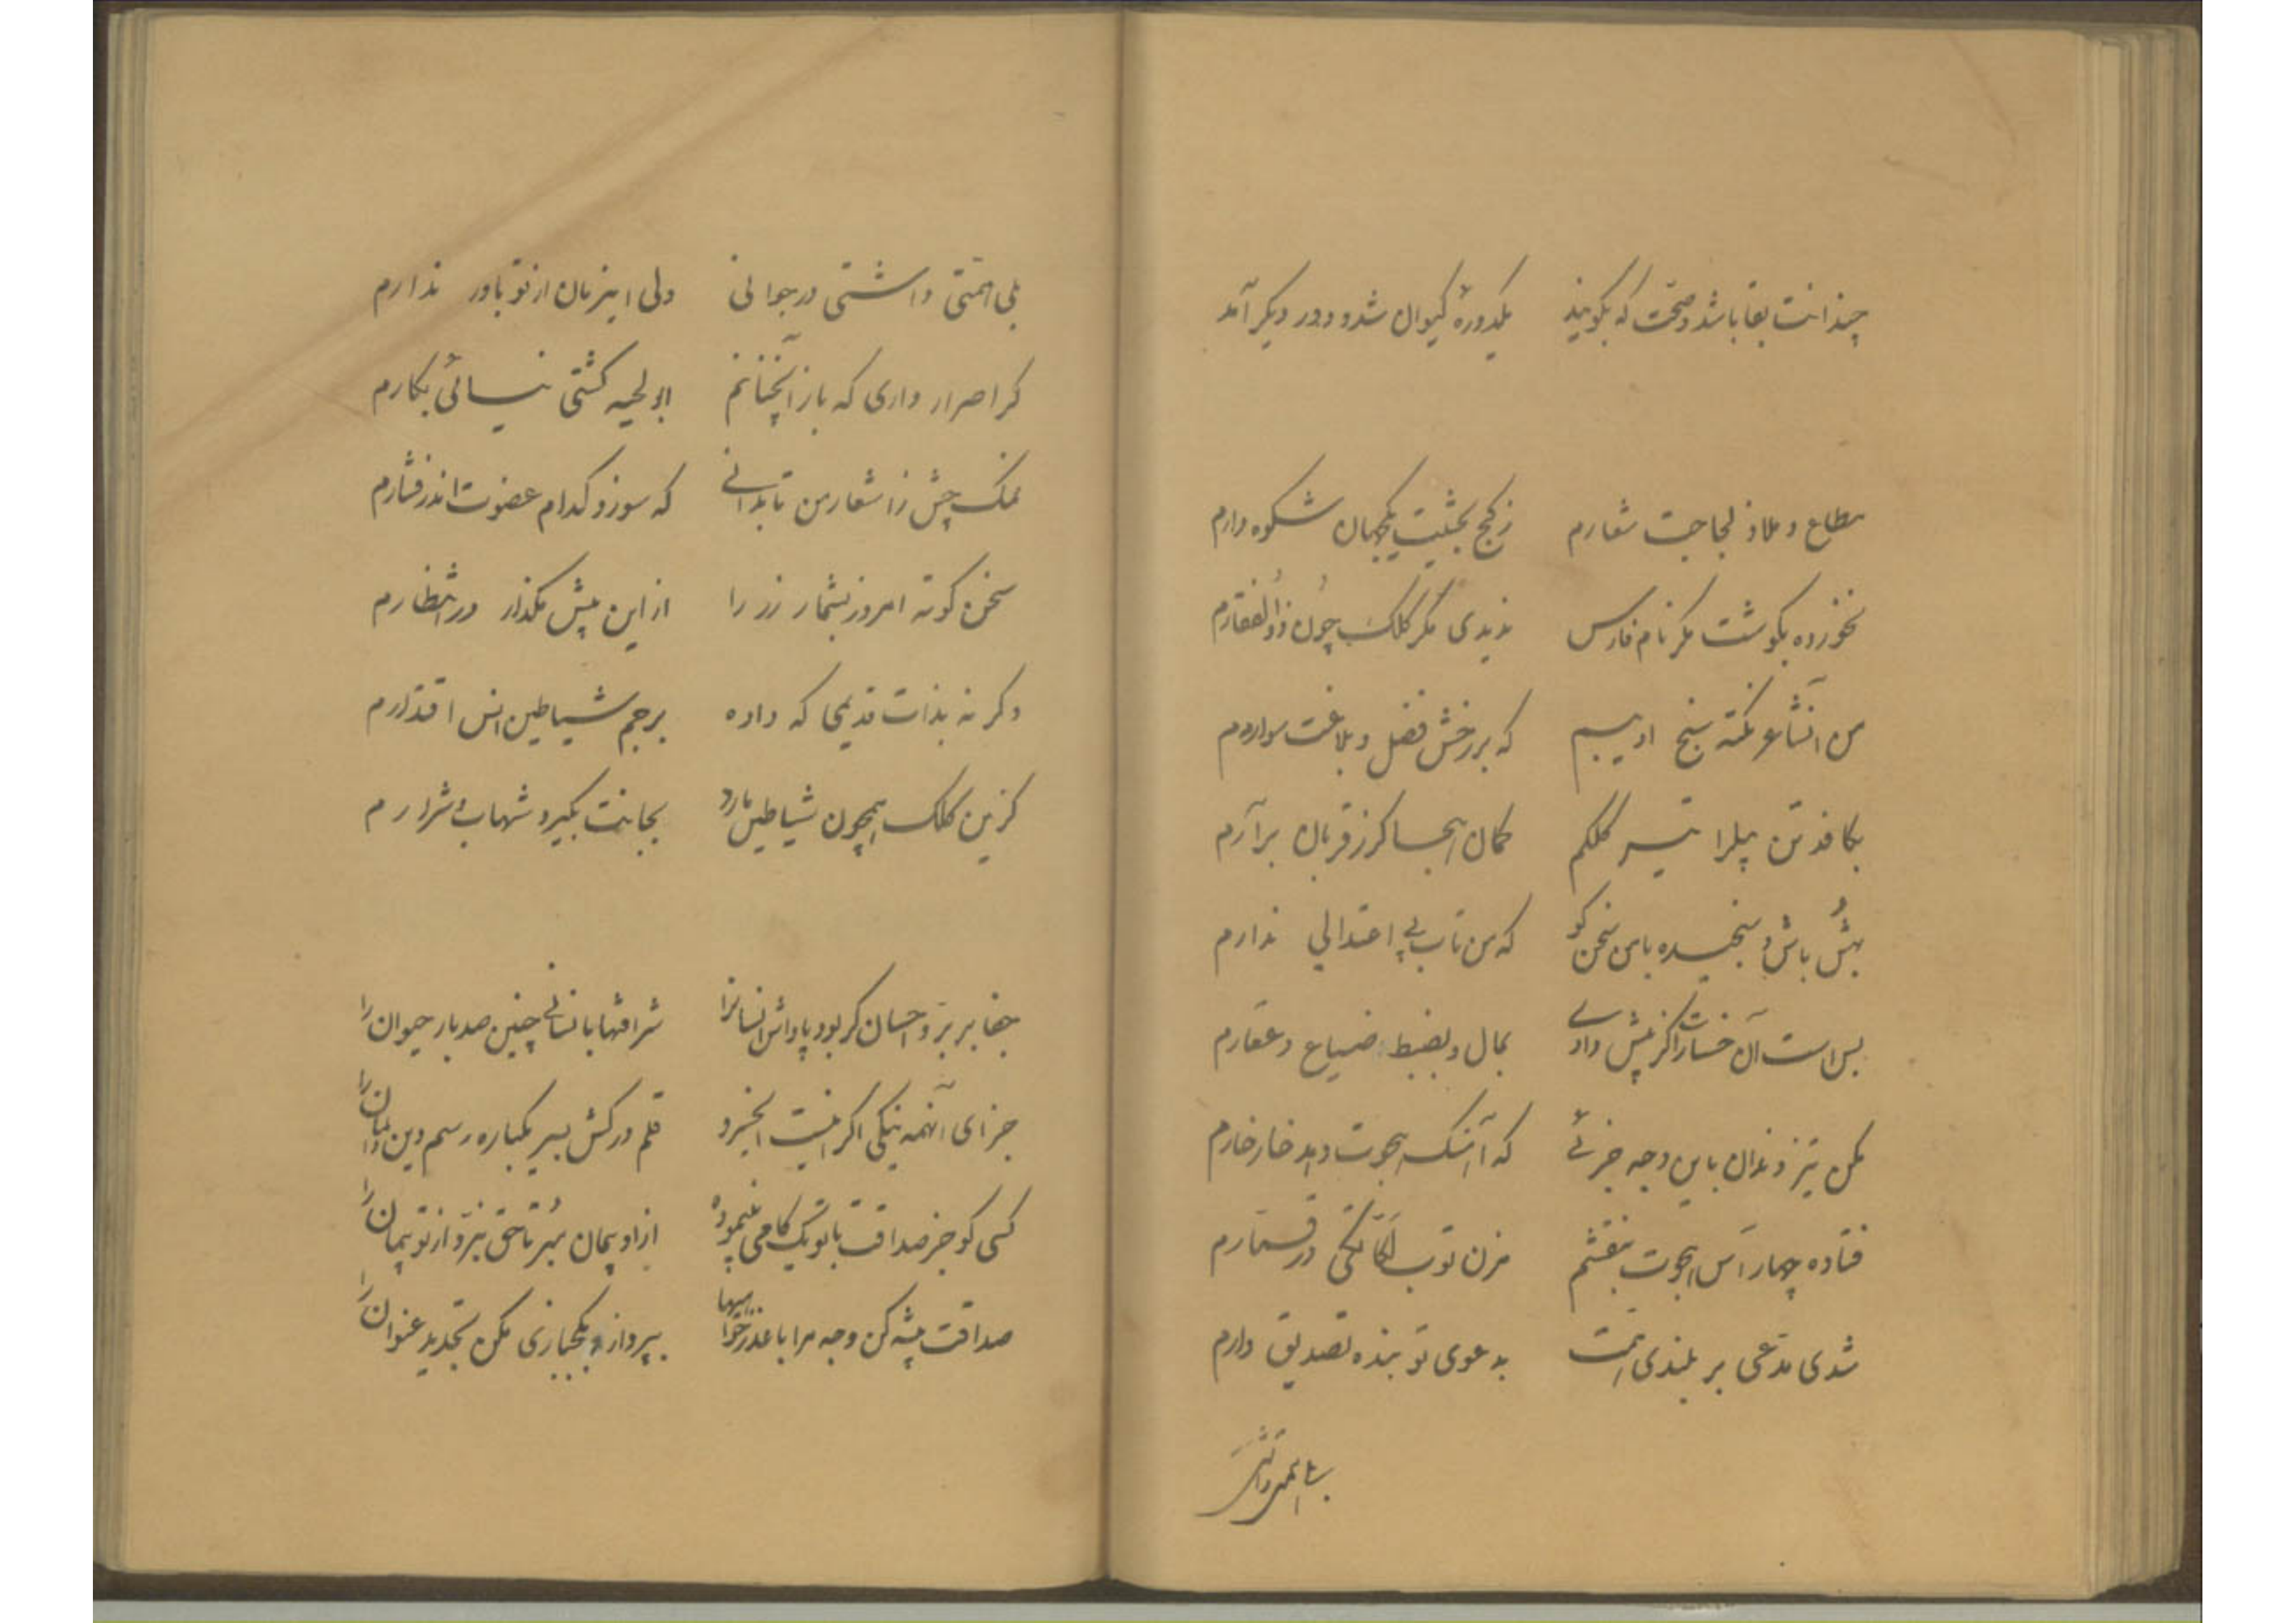 چندانت بقا باشد و صحت که بگویند یکدورهٔ کیوان شد و دور دیگر آمد
مطاع و ملاذ لجاجت شعارم ز کج بحثیت یکجهان شکوه دارم
نخورده بگوشت مگر نام فارس ندیدی مگر کلک چون ذوالفقارم
من آنشاعر نکته سنج ادیبم که بر رخش فضل و بلاغت سوارم
بکافد تن پیلرا تیر کلکم کمان هجا گر ز قربان برآرم
بهش باش و سنجیده با من سخن گو که من تاب بی اعتدالی ندارم
بس است آن خسارا کزین پیش دادی بمال و بضبط ضیاع و عقارم
مکن تیز دندان باین وجه جزئی که آهنگ هجوت دهد خارخارم
فتاده چهار آس هجوت بنقشم مزن توپ لکاتگی در قمارم
شدی مدعی بر بلندی همت بدعوی تو بنده تصدیق دارم
بلی همتی داشتی در جوانی ولی اینزمان از تو باور ندارم
گر اصرار داری که باز آنچنانم ابو لحیه کشتی نسائی بکارم
نمک چش ز اشعار من تا بدانی که سوزد کدام عضوت اندر فشارم
سخن کوته امروز بشمار زر را از این بیش مگذار در انتظارم
وگرنه بذات قدیمی که داده برجم شیاطین انس اقتدارم
کزین کلک همچون شیاطین مارد بجانت بگیرد شهاب شرارم
جفا بر بر و احسان گر بود پاداش انسانرا شرافتها بانسانی چنین صد بار حیوان را
جزای آنهمه نیکی اگر اینست ایخسرو قلم در کش بسر یکباره رسم دین و ایمان را
کسی کو جز صداقت با تو یک گامی نپیموده از او پیمان مبر تا حق نبرد از تو پیمان را
صداقت پیشه کن وجه مرا با عذرخواهیها بپرداز و بکجبازی مکن تجدید عنوان را